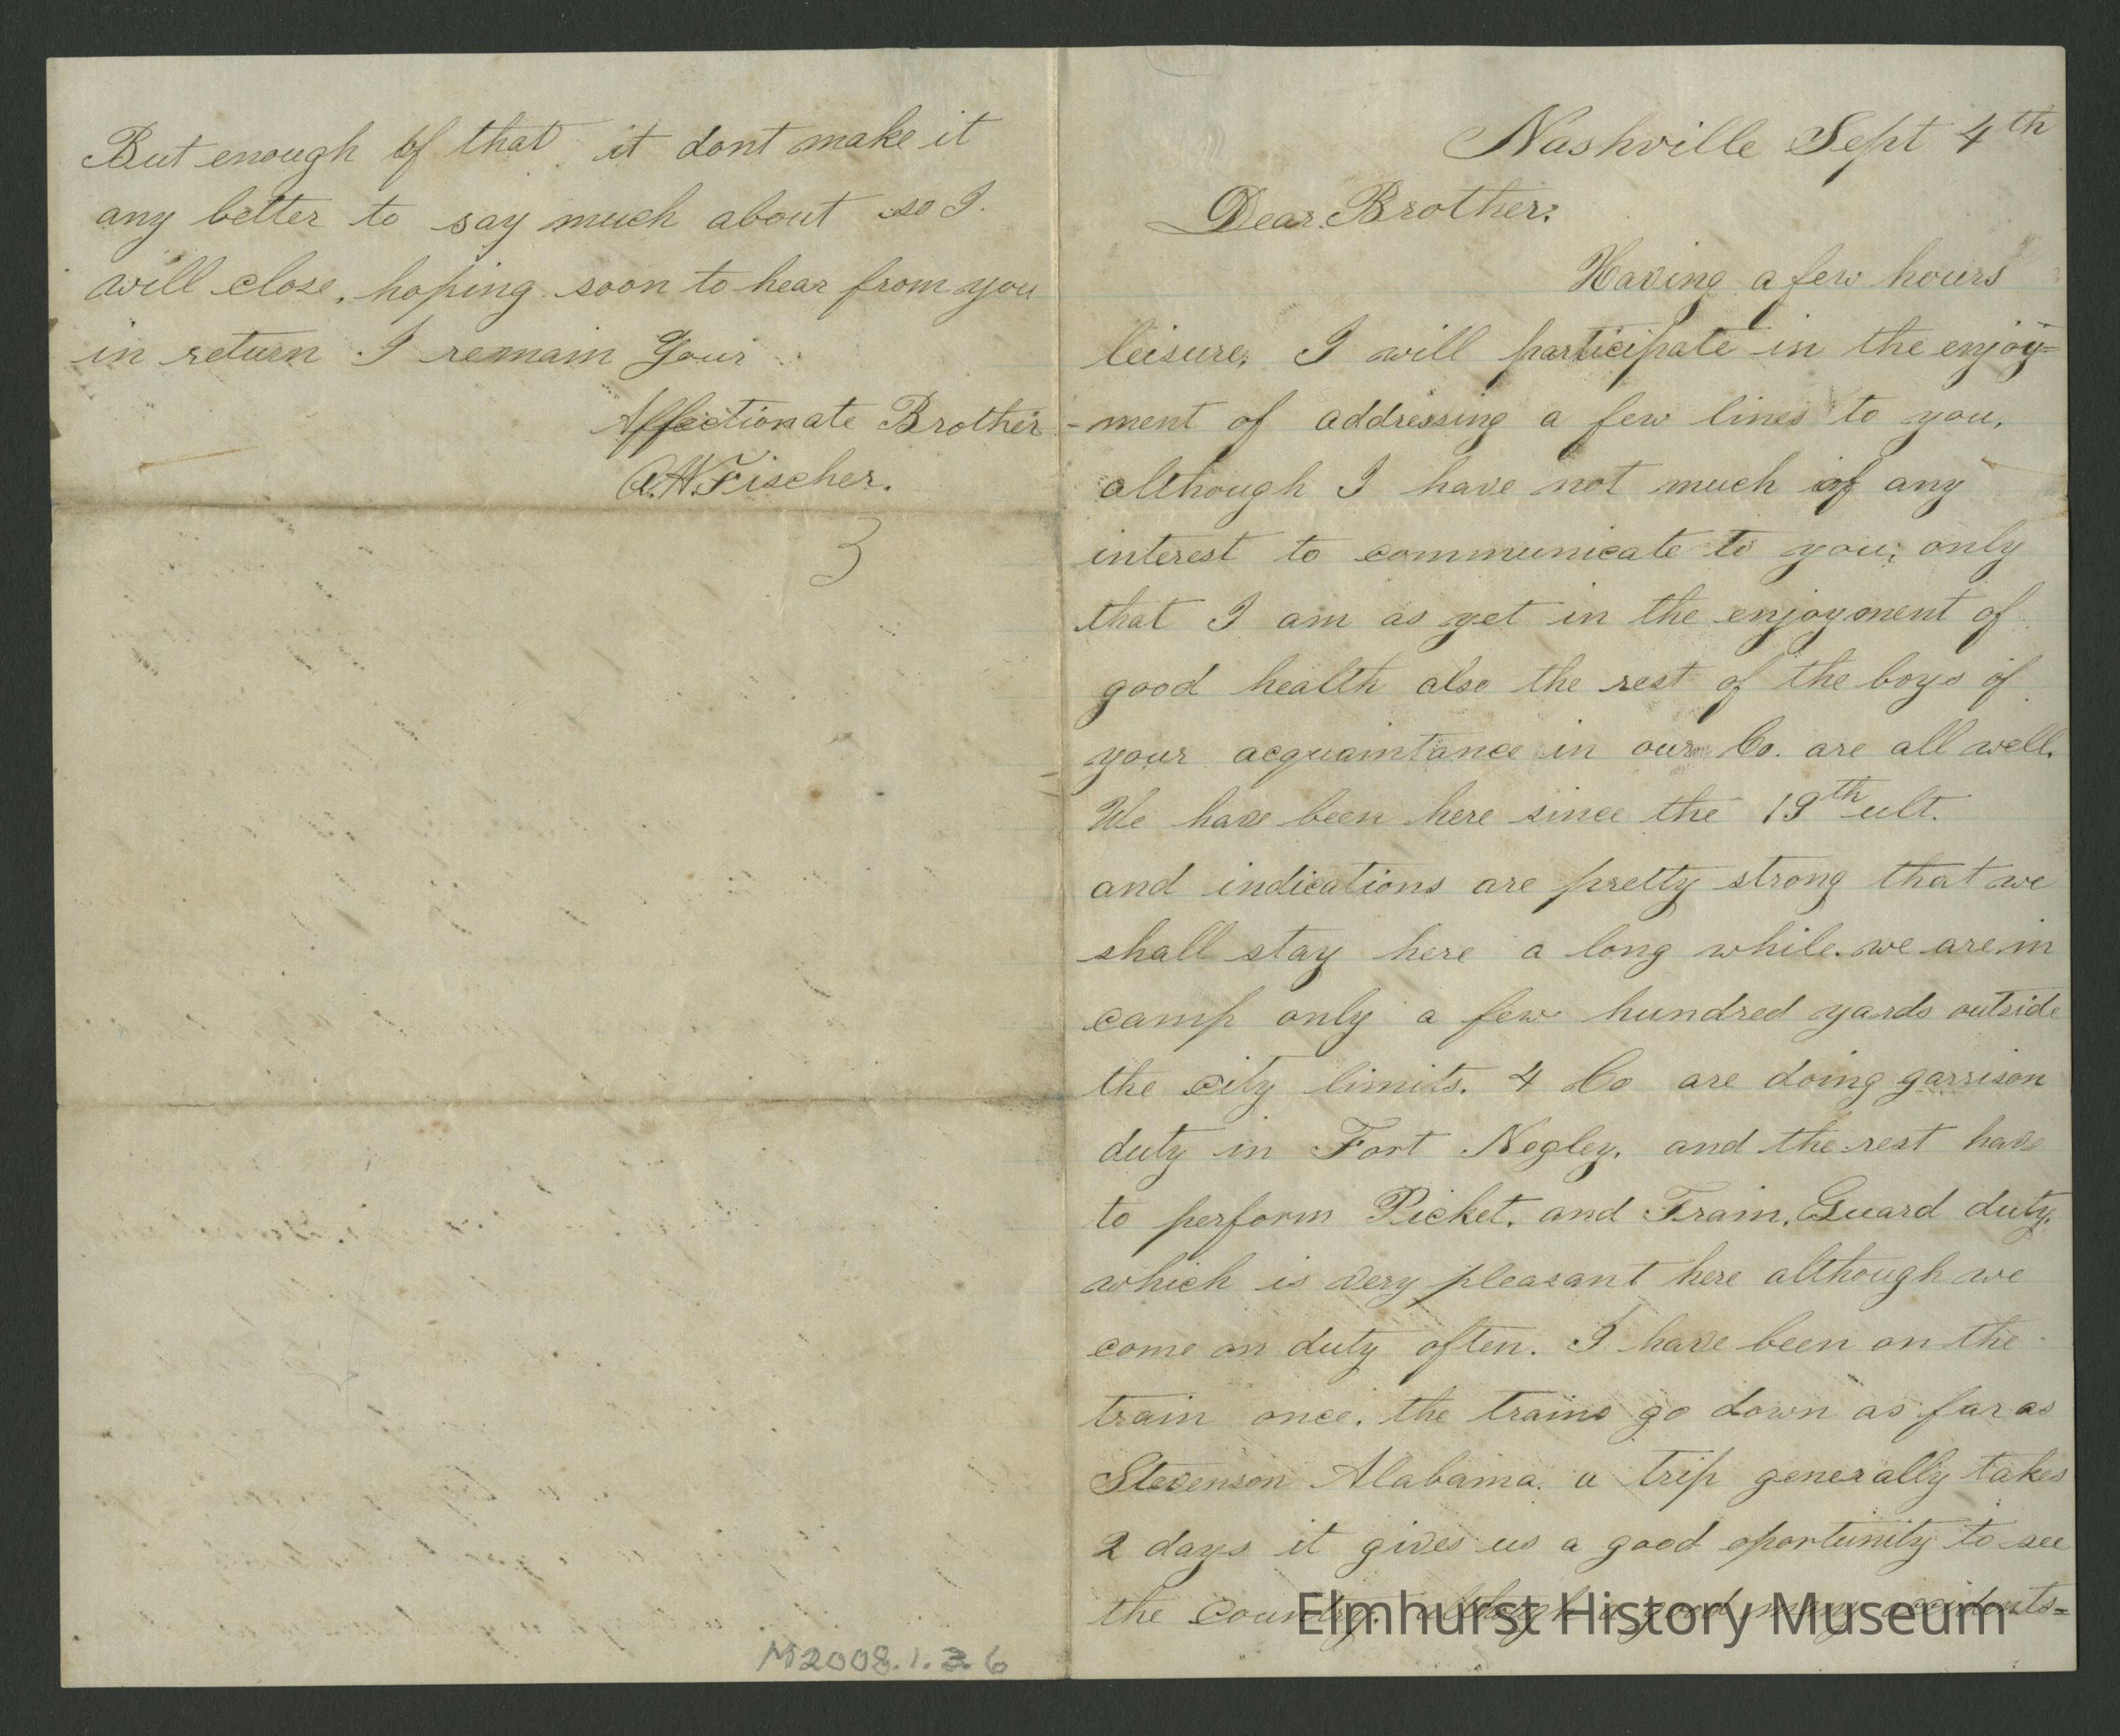 But enough of that, it dont make it
any better to say much about so I.
will close, hoping soon to hear from you
in return I remain Your
Affectionate Brother
A.H.Fischer.
3
M2008.1.36
Nashville Sept 4th
Dear Brother:
Having a few hours
leisure, I will participate in the enjoy=
-ment of addressing a few lines to you,
although I have not much of any
interest to communicate to you; only
that I am as yet in the enjoyment of
good health also the rest of the boys of
your acquaintance in our Co. are all well.
We have been here since the 19th ult.
and indications are pretty strong that we
shall stay here a long while. we are in
camp only a few hundred yards outside
the city limits. 4 Co are doing garrison
duty in Fort Negley. and the rest have
to perform Picket, and Train, Guard duty.
which is very pleasant here although we
come on duty often. I have been on the
train once. the trains go down as far as
Stevenson Alabama. a trip generally takes
2 days it gives us a good oportunity to see
the Country. although a good many accidents=
Elmhurst History Museum